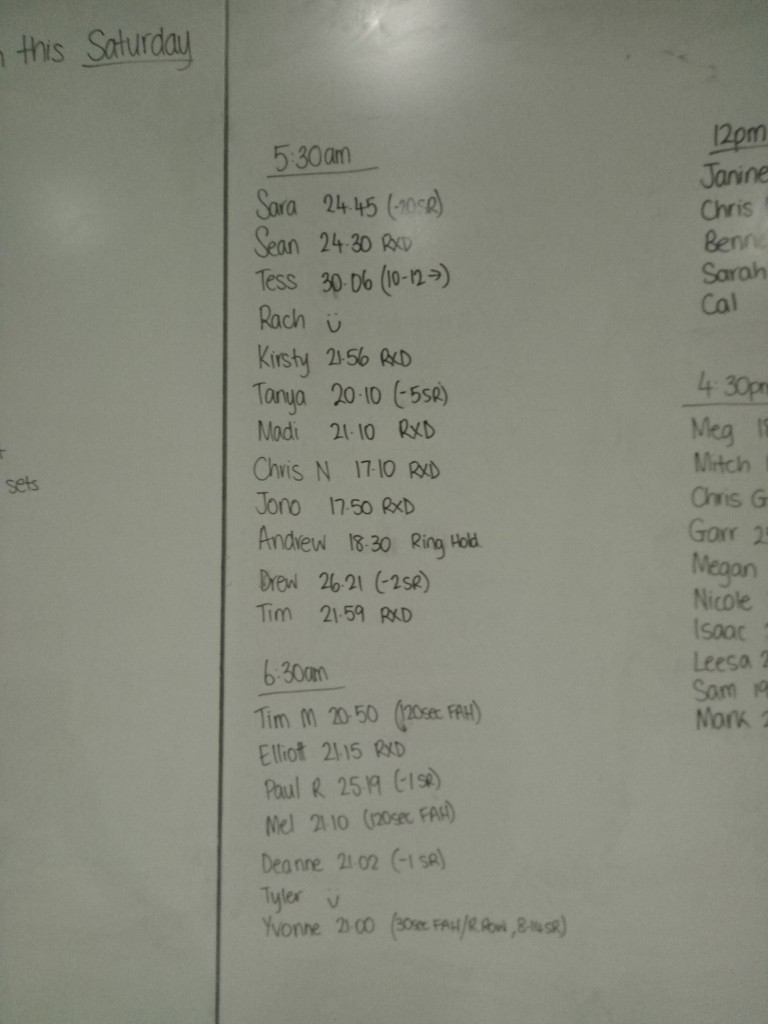 this Saturday
sets
5:30am
Sara 24.45 (-20SR)
Sean 24.30 RXD
Tess 30.06 (10-12→)
Rach ü
Kirsty 21.56 RXD
Tanya 20.10 (-5SR)
Madi 21.10 RXD
Chris N 17.10 RXD
Jono 17.50 RXD
Andrew 18.30 Ring Hold
Drew 26.21 (-2SR)
Tim 21.59 RXD
6:30am
Tim M 20.50 (120sec FAH)
Elliott 21.15 RXD
Paul R 25.19 (-1SR)
Mel 21.10 (120sec FAH)
Deanne 21.02 (-1 SR)
Tyler ü
Yvonne 21.00 (30sec FAH/R.Row, SR)
12pm
Janine
Chris
Sarah
Cal
4:30pm
Meg 18
Mitch
Chris G
Garr 2
Megan
Nicole
Isaac
Leesa 2
Sam 19
Mark 2